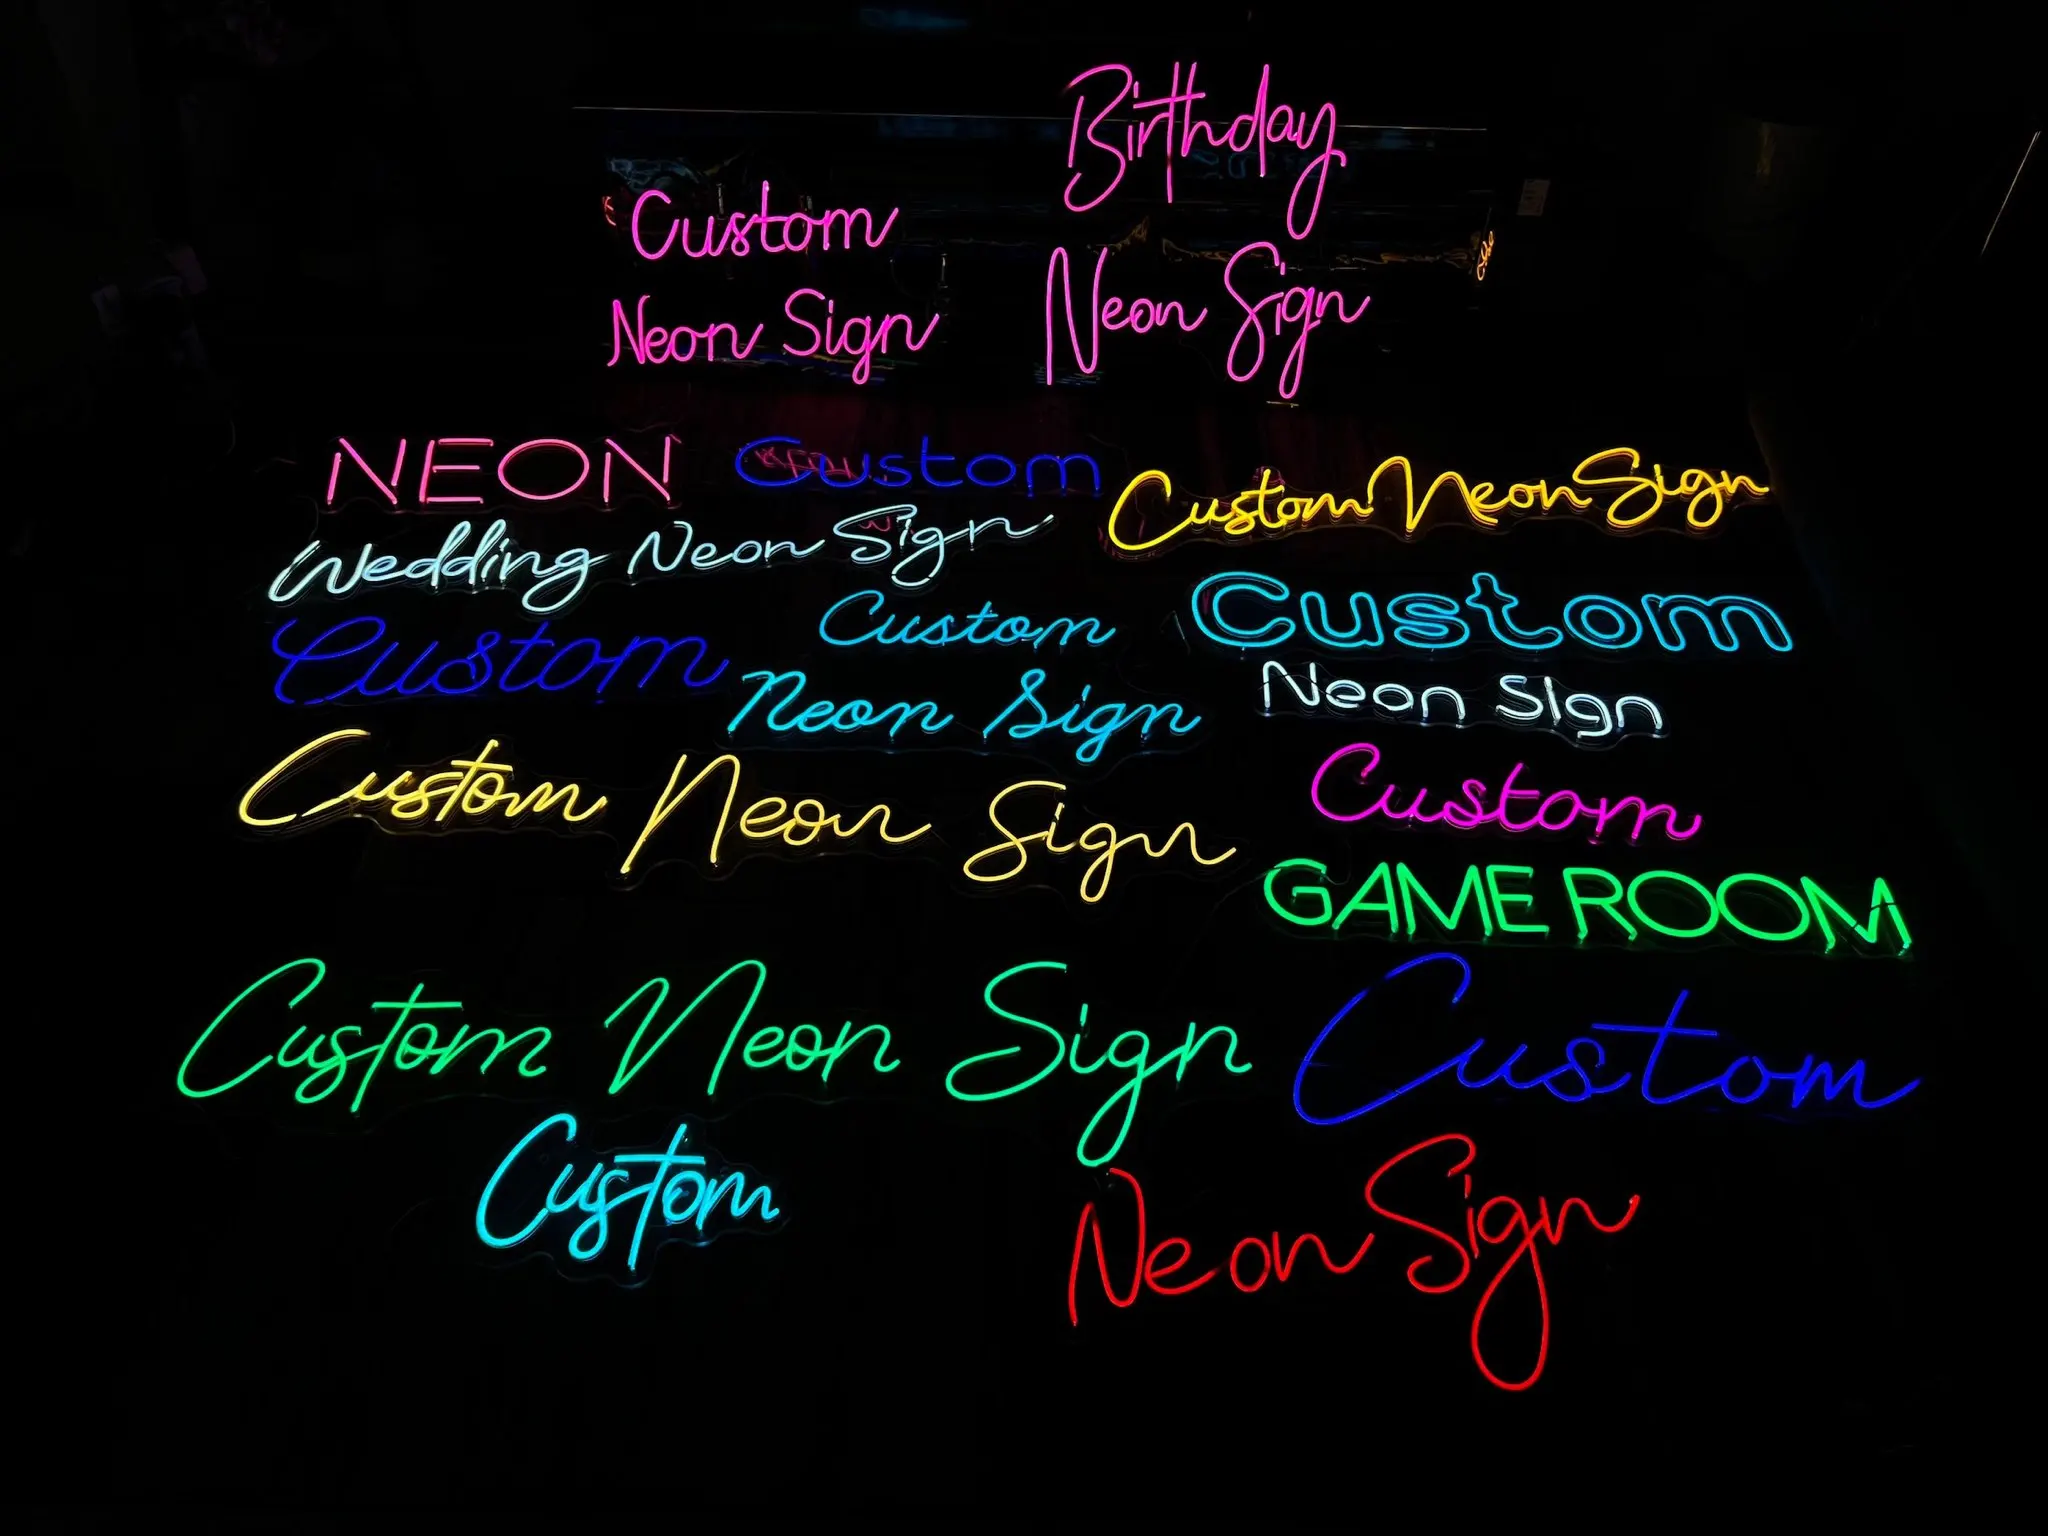 Birthday
Neon Sign
Custom
Neon Sign
NEON
Custom
Custom Neon Sign
Wedding Neon Sign
Custom
Neon Sign
Custom
Neon Sign
Custom
Custom Neon Sign
Custom
GAME ROOM
Custom Neon Sign
Custom
Custom
Neon Sign